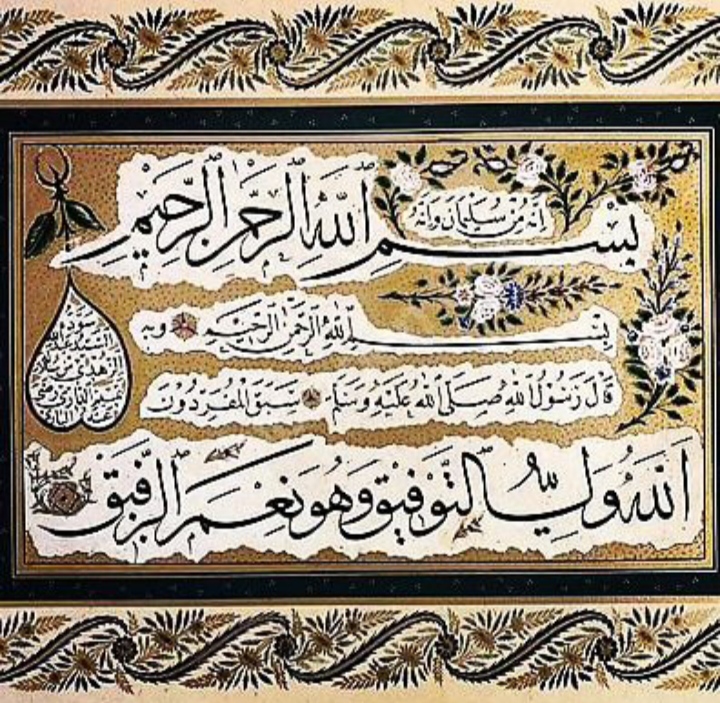 إنه من سليمان وإنه
بسم الله الرحمن الرحيم
بسم الله الرحمن الرحيم وبه
قال رسول الله صلى الله عليه وسلم سبق المفردون
الله ولي التوفيق وهو نعم الرفيق